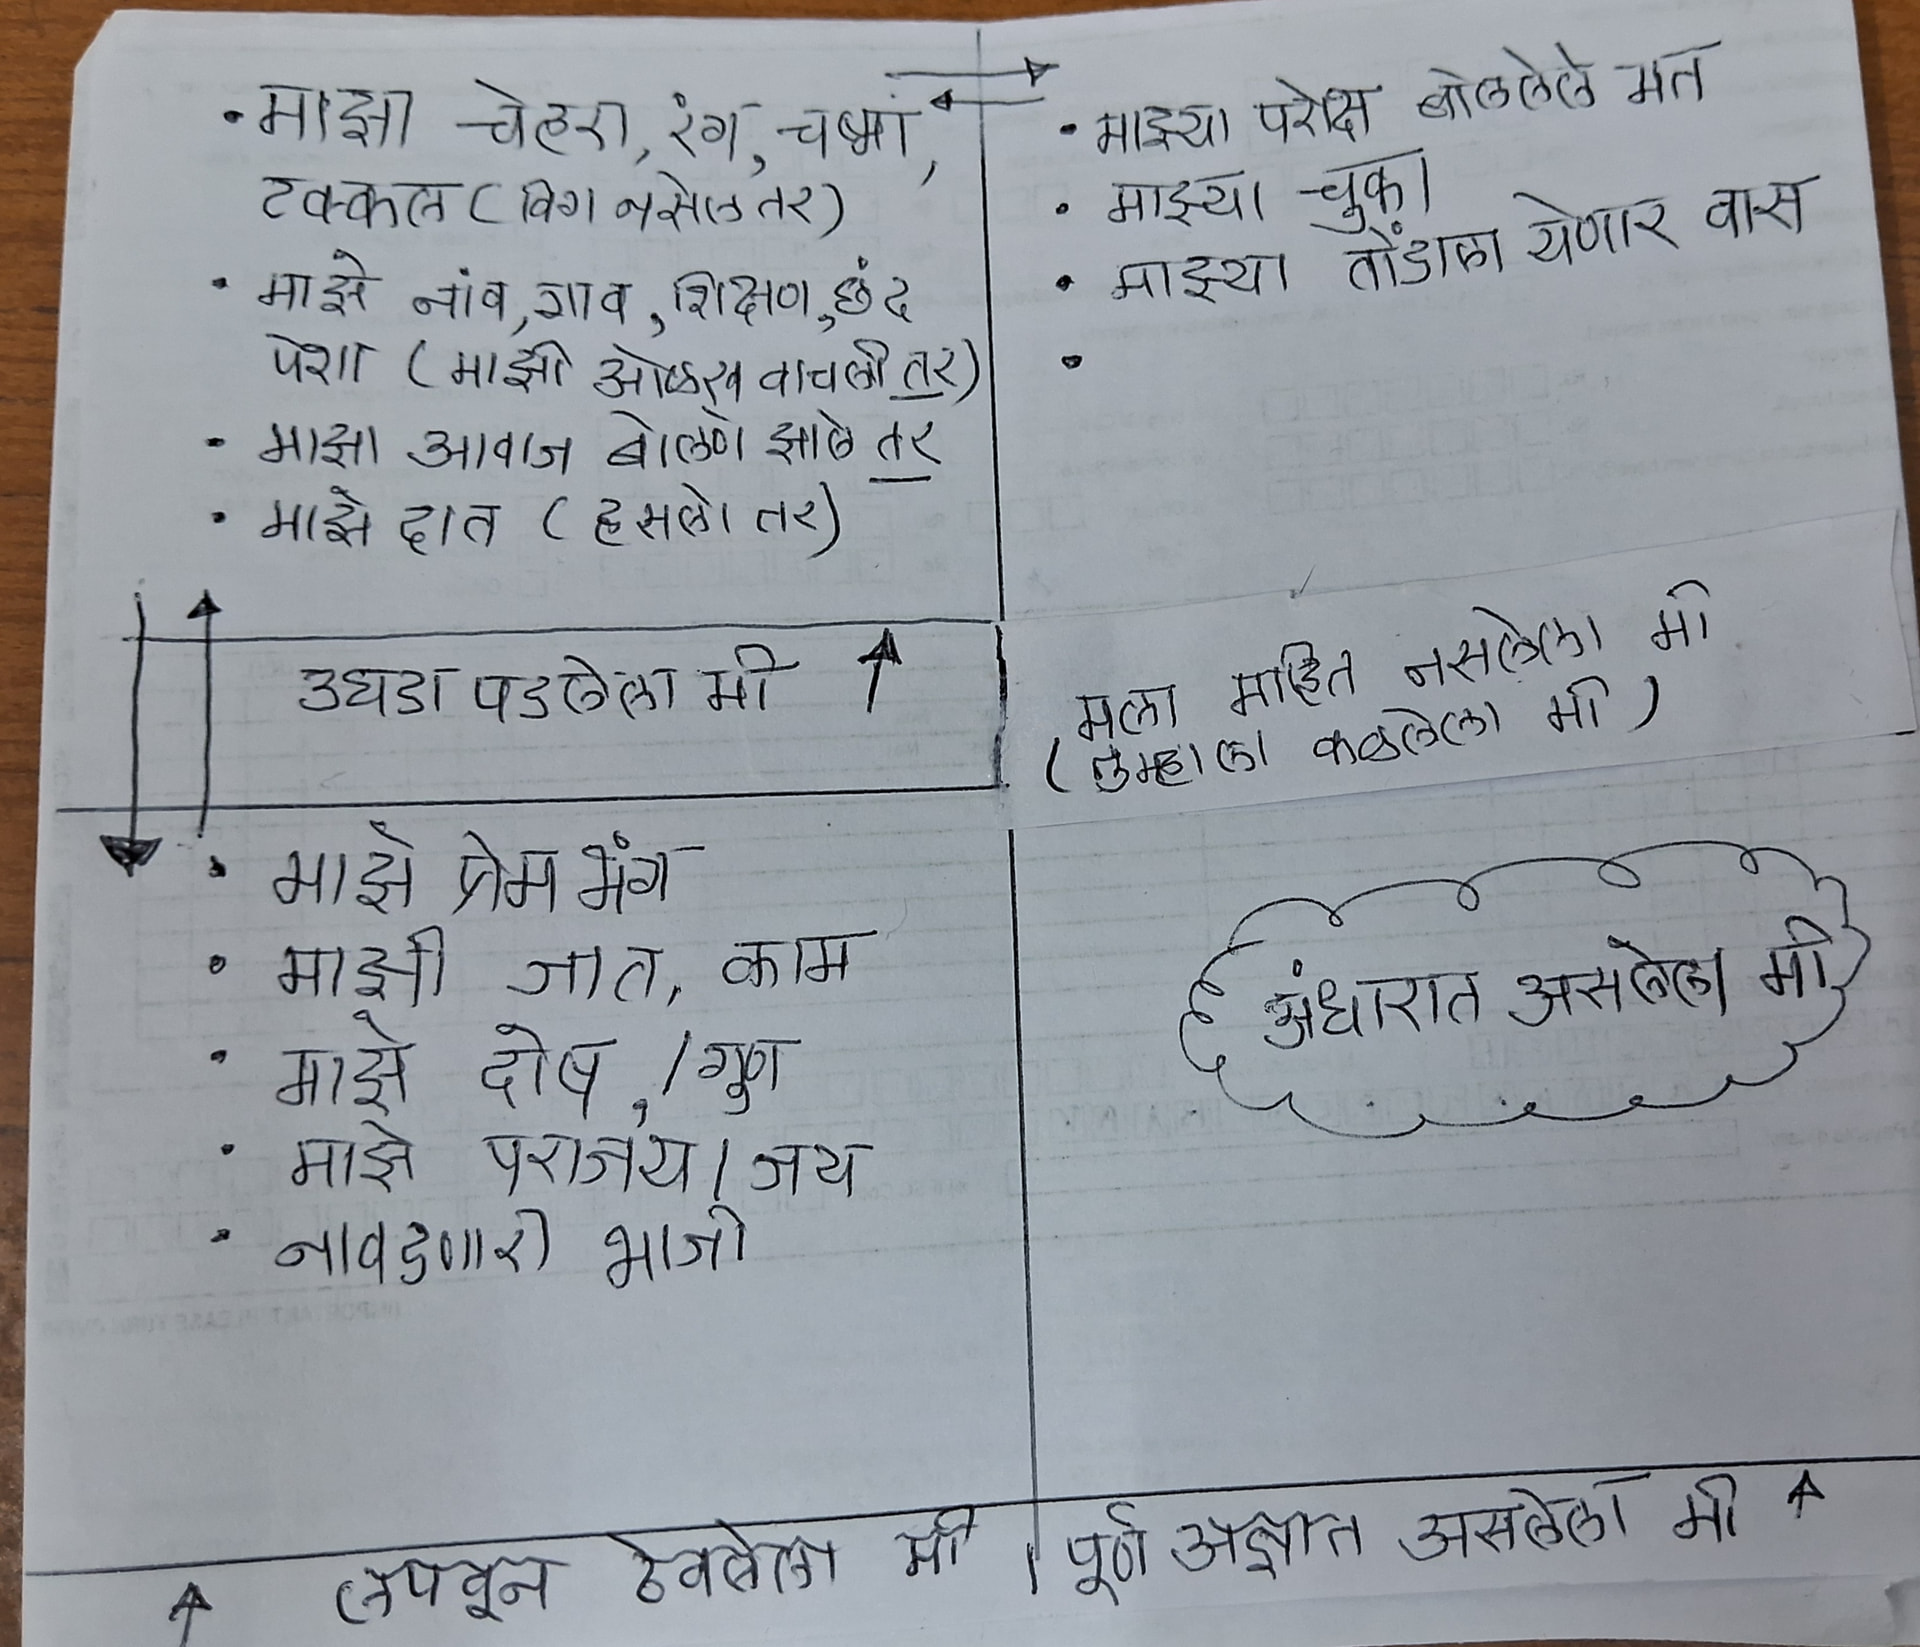 • माझा चेहरा, रंग, चष्मा,
टक्कल (विग नसेल तर)
• माझे नांव, गाव, शिक्षण, छंद
पेशा (माझी ओळख वाचली तर)
• माझा आवाज बोलणे झाले तर
• माझे दात (हसलो तर)
उघडा पडलेला मी ↑
• माझ्या परोक्ष बोललेले मत
• माझ्या चुका
• माझ्या तोंडाला येणार वास
•
मला माहित नसलेला मी
(तुम्हाला कळलेला मी)
• माझे प्रेम भंग
• माझी जात, काम
• माझे दोष, / गुण
• माझे पराजय / जय
• नावडणारी भाजी
↑ लपवून ठेवलेला मी
अंधारात असलेला मी
पूर्ण अज्ञात असलेला मी ↑